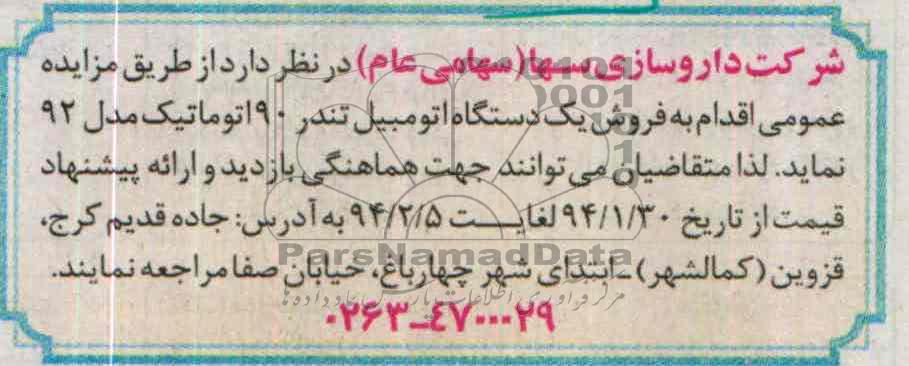 شرکت داروسازی سها (سهامی عام) در نظر دارد از طریق مزایده
عمومی اقدام به فروش یک دستگاه اتومبیل تندر ۹۰ اتوماتیک مدل ۹۲
نماید. لذا متقاضیان می توانند جهت هماهنگی بازدید و ارائه پیشنهاد
قیمت از تاریخ ۹۴/۱/۳۰ لغایت ۹۴/۲/۵ به آدرس: جاده قدیم کرج،
ParsNamadData
قزوین (کمالشهر) - ابتدای شهر چهارباغ، خیابان صفا مراجعه نمایند.
۰۲۶۳-۴۷۰۰۰۲۹